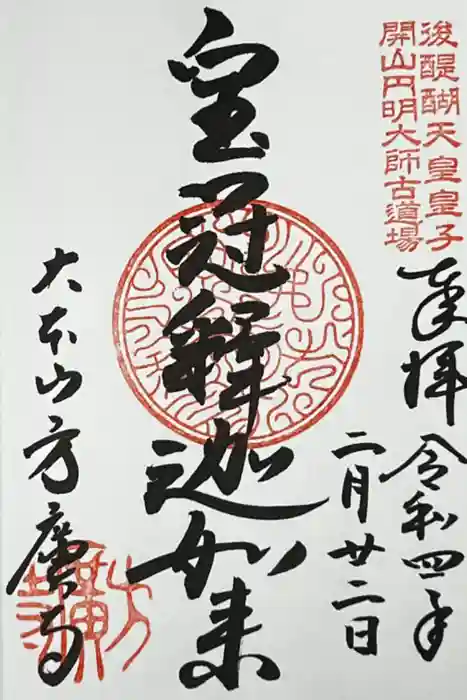 後醍醐天皇皇子
開山円明大師古道場
奉拝
令和四年
二月廿二日
宝冠釈迦如来
大本山方廣寺